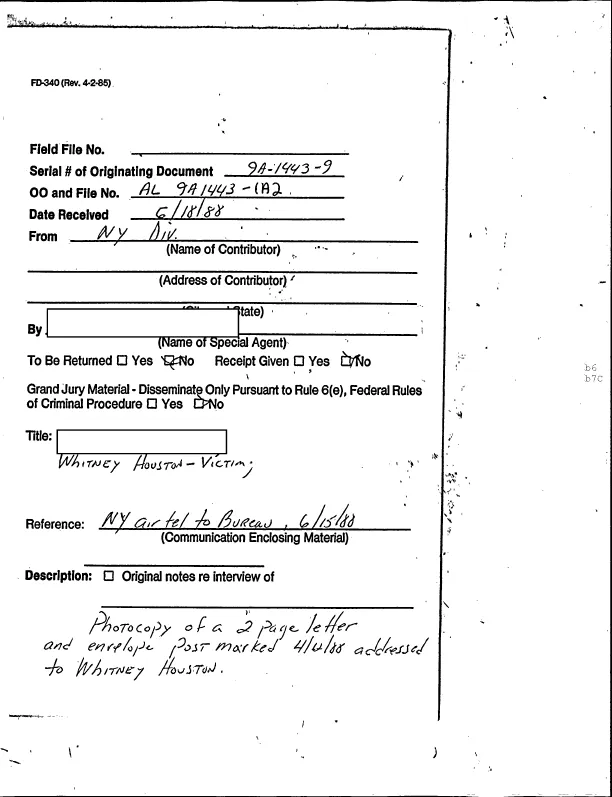 FD-340 (Rev. 4-2-85)
Field File No.
Serial # of Originating Document 9A-1443-9
OO and File No. AL 9A1443-1A2
Date Received 6/18/88
From NY Div.
(Name of Contributor)
(Address of Contributor)
State)
By
(Name of Special Agent)
To Be Returned ☐ Yes ☒ No Receipt Given ☐ Yes ☒ No
b6
b7C
Grand Jury Material - Disseminate Only Pursuant to Rule 6(e), Federal Rules
of Criminal Procedure ☐ Yes ☒ No
Title:
Whitney Houston - Victim;
Reference: NY airtel to Bureau, 6/15/88
(Communication Enclosing Material)
Description: ☐ Original notes re interview of
Photocopy of a 2 page letter
and envelope post marked 4/4/88 addressed
to Whitney Houston.